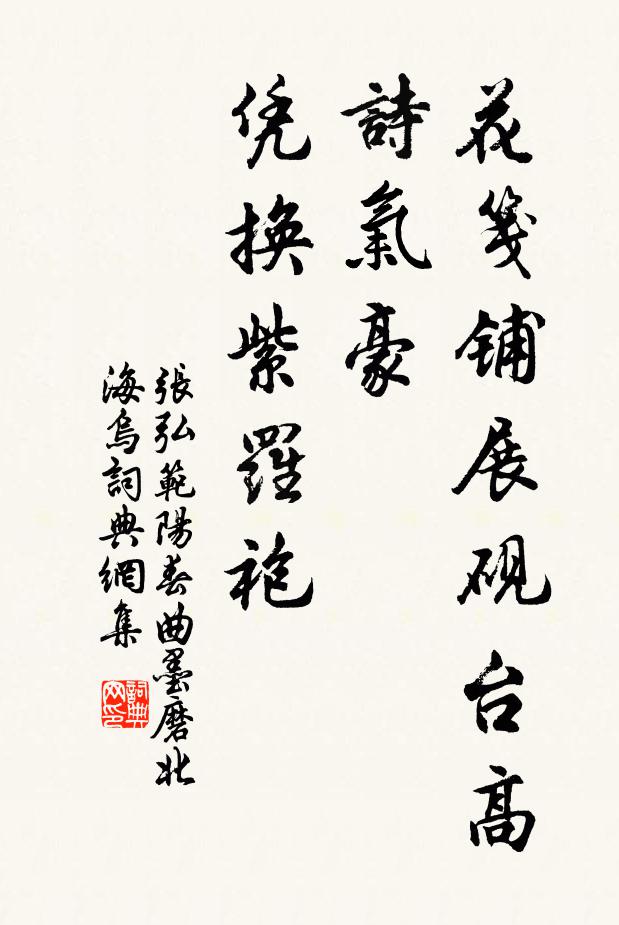 花箋铺展硯台高
詩氣豪
凭換紫羅袍
張弘範陽春曲墨磨北
海烏詞典網集
詞典网印